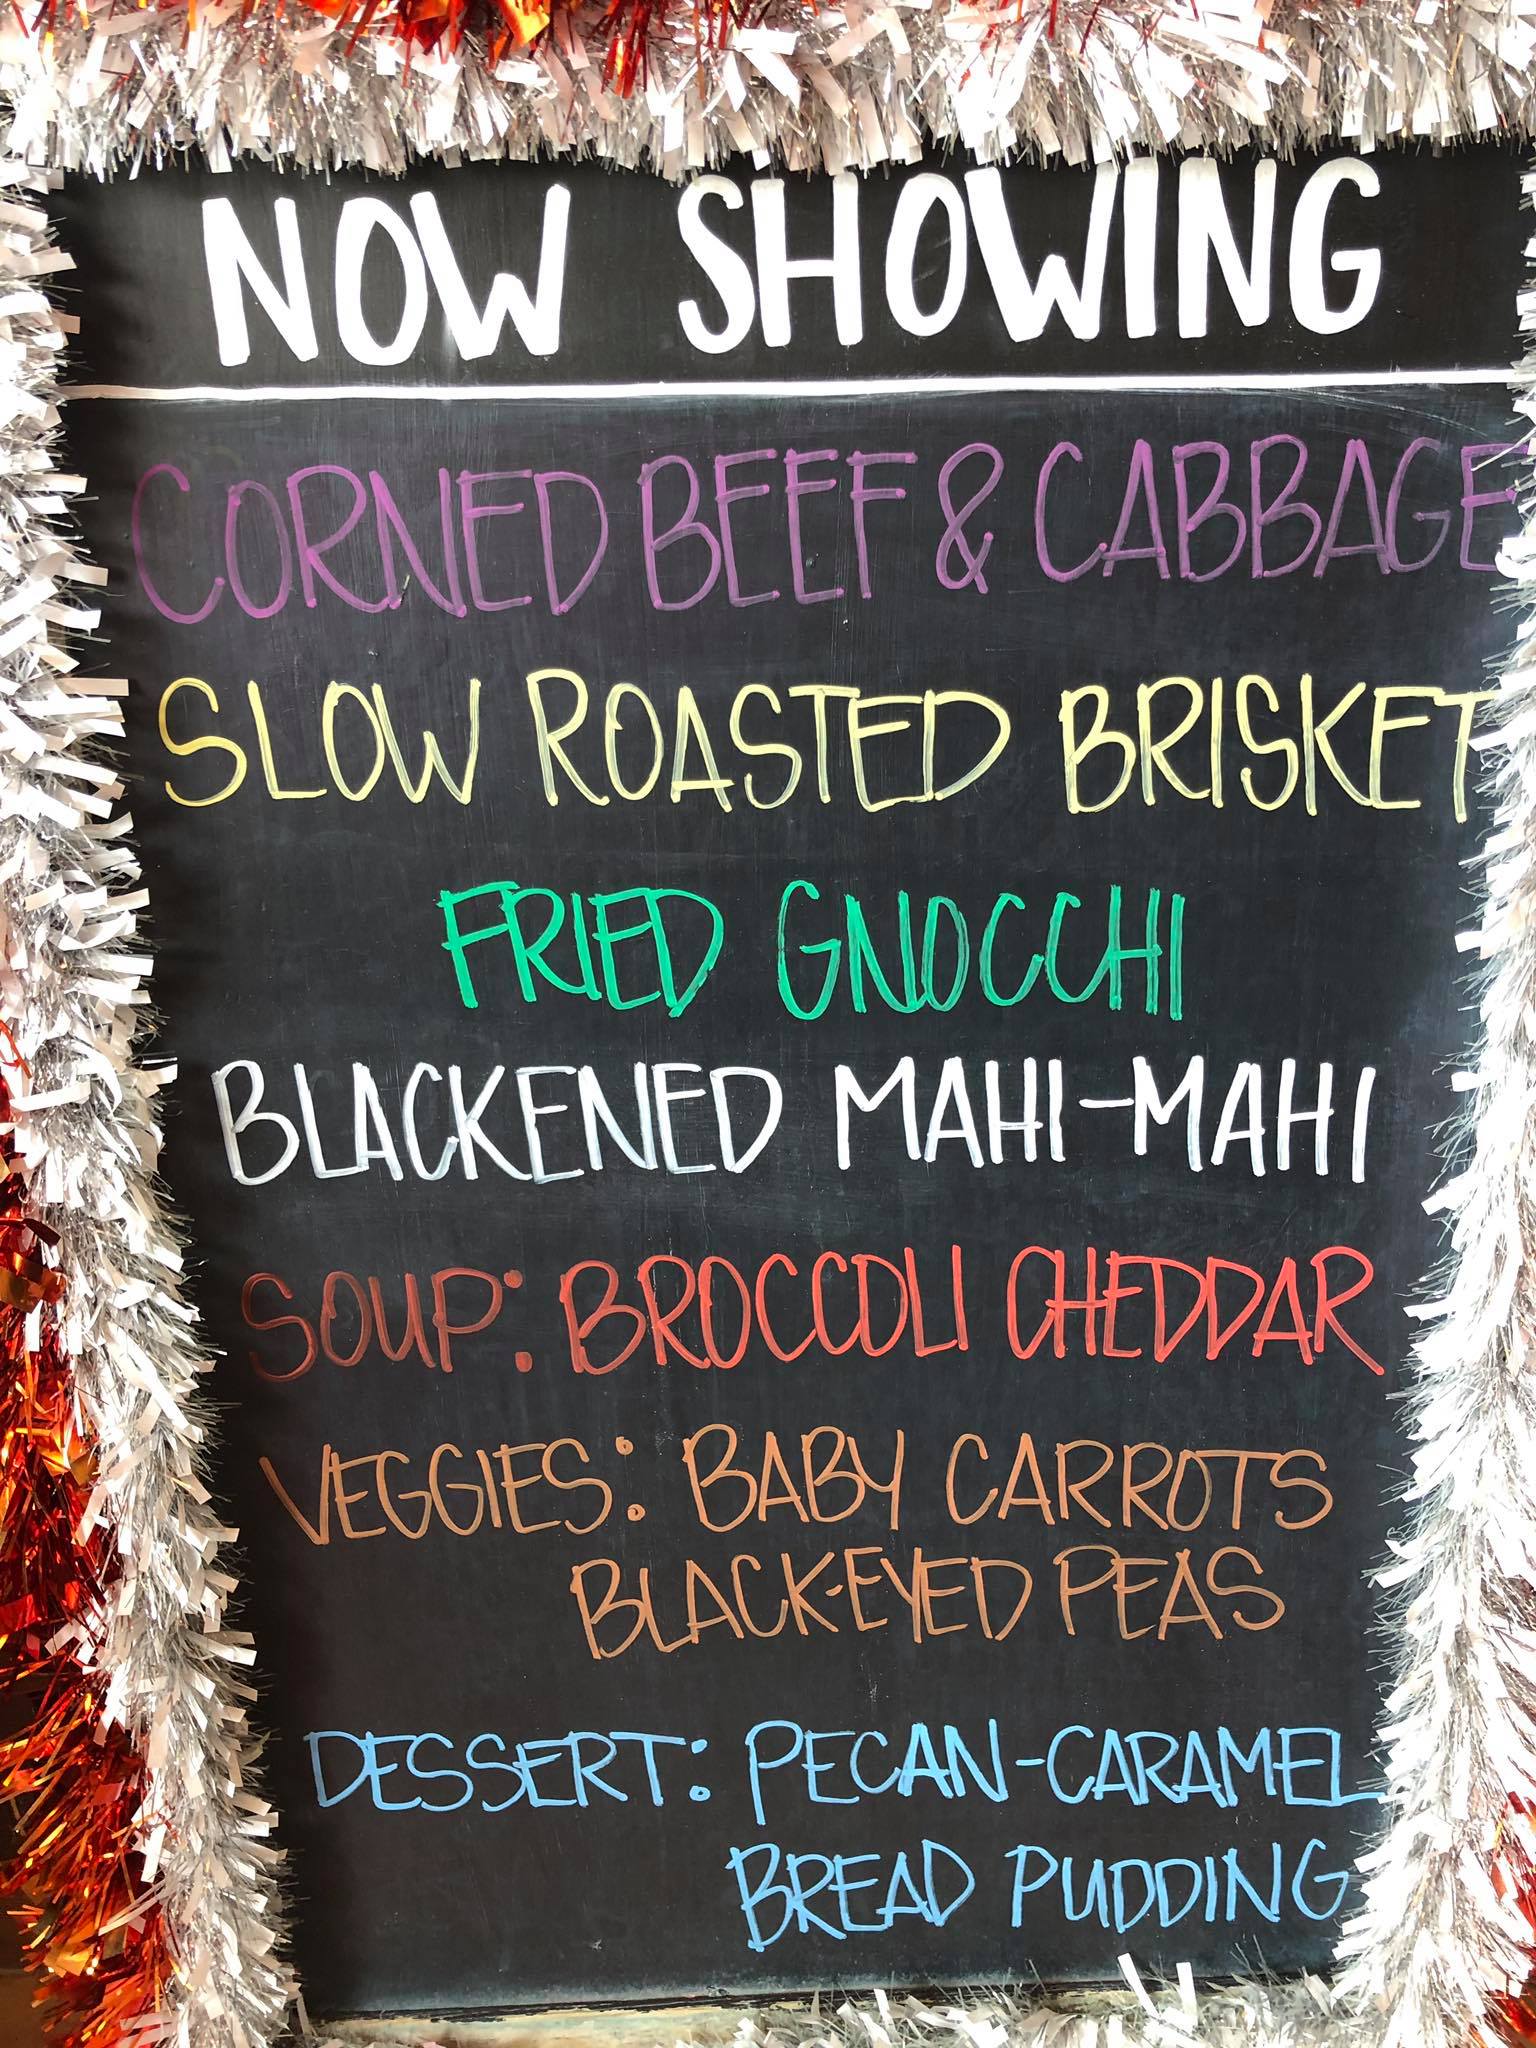 NOW SHOWING
CORNED BEEF & CABBAGE
SLOW ROASTED BRISKET
FRIED GNOCCHI
BLACKENED MAHI-MAHI
SOUP: BROCCOLI CHEDDAR
VEGGIES: BABY CARROTS
BLACK-EYED PEAS
DESSERT: PECAN-CARAMEL
BREAD PUDDING